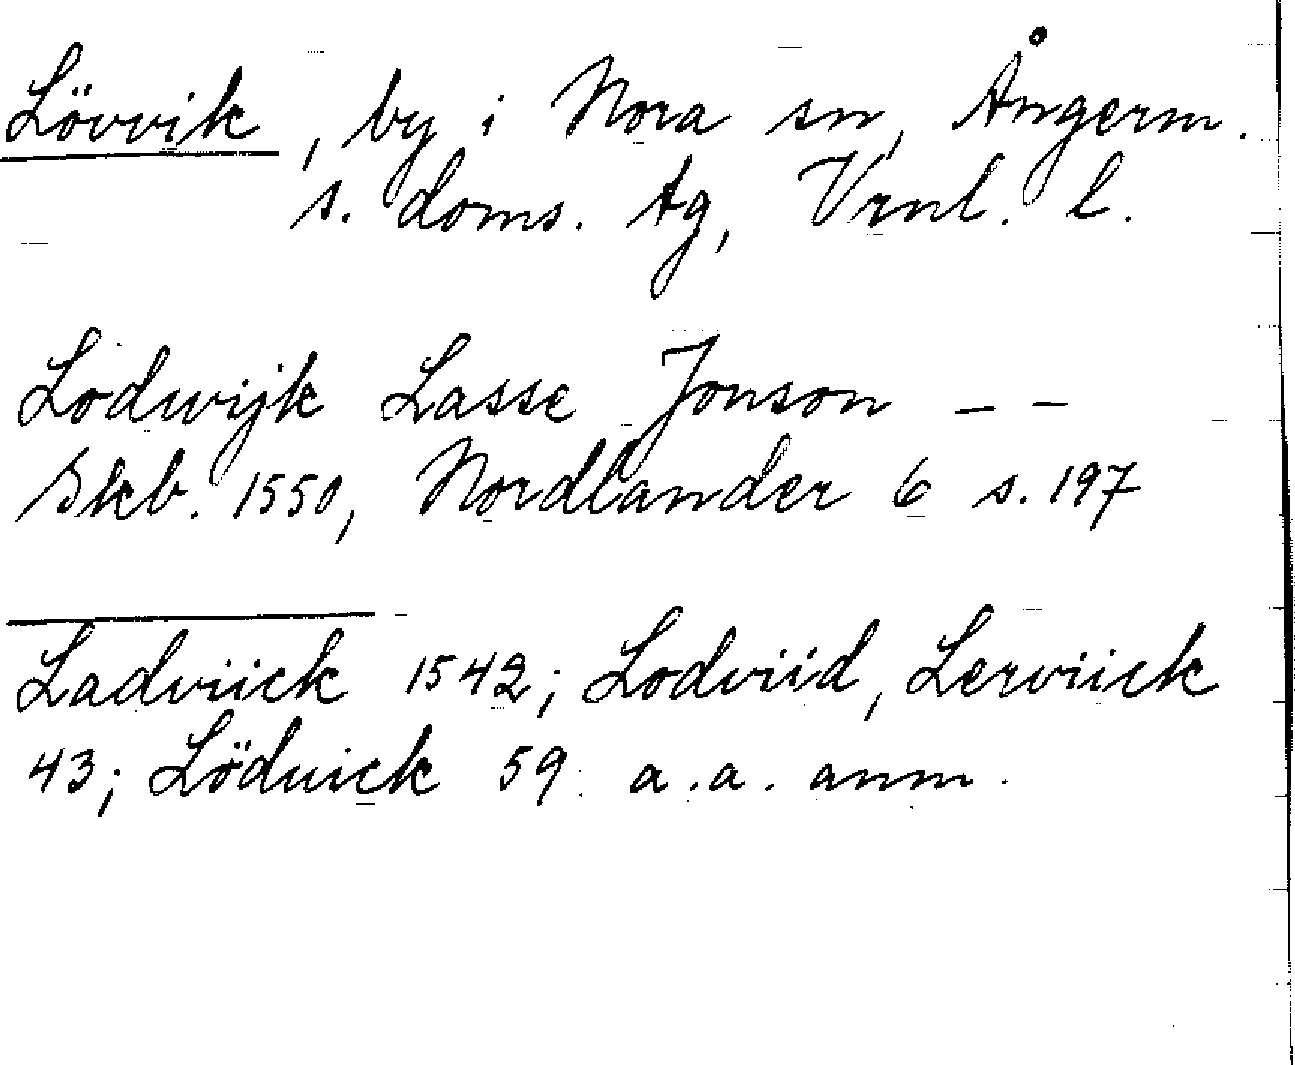 Lövvik, by i Nora sn, Ångerm.
s. doms. tg, Vrnl. l.
Lodwijk Lasse Jonson – –
Skb. 1550, Nordlander 6 s. 197
Ladviick 1542; Lodviid, Lerviick
43; Löduick 59 a.a. anm.